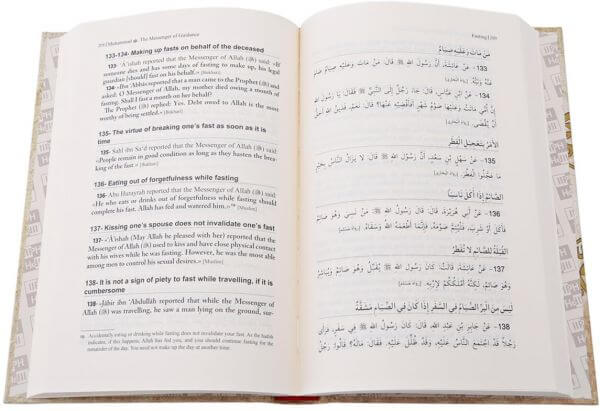 Muhammad ﷺ The Messenger of Guidance
133-134- Making up fasts on behalf of the deceased
133- 'A'ishah reported that the Messenger of Allah (ﷺ) said: «If
someone dies and has some days of fasting to make up, his legal
guardian [should] fast on his behalf.» [Bukhari]
134- «Ibn 'Abbas reported that a man came to the Prophet (ﷺ) and
asked: O Messenger of Allah, my mother died owing a month of
fasting. Shall I fast a month on her behalf?
The Prophet (ﷺ) replied: Yes. Debt owed to Allah is the most
worthy of being settled.» [Bukhari]
135- The virtue of breaking one's fast as soon as it is
time
135- Sahl ibn Sa'd reported that the Messenger of Allah (ﷺ) said:
«People remain in good condition as long as they hasten the break-
ing of the fast.» [Bukhari]
136- Eating out of forgetfulness while fasting
136- Abu Hurayrah reported that the Messenger of Allah (ﷺ) said:
«He who eats or drinks out of forgetfulness while fasting should
complete his fast. Allah has fed and watered him.» [Muslim]
137- Kissing one's spouse does not invalidate one's fast
137- 'A'ishah (May Allah be pleased with her) reported that the
Messenger of Allah (ﷺ) used to kiss and have close physical contact
with his wives while he was fasting. However, he was the most able
among men to control his sexual desires.» [Muslim]
138- It is not a sign of piety to fast while travelling, if it is
cumbersome
138- Jabir ibn 'Abdullah reported that while the Messenger of Allah
(ﷺ) was travelling, he saw a man lying on the ground, sur-
Accidentally eating or drinking while fasting does not invalidate your fast. As the hadith
indicates, if this happens, Allah has fed you, and you should continue fasting for the
remainder of the day. You need not make up the day at another time.
Fasting
مَنْ مَاتَ وَعَلَيْهِ صِيَامٌ
133- عَنْ عَائِشَةَ، أَنَّ رَسُولَ اللهِ ﷺ قَالَ: مَنْ مَاتَ وَعَلَيْهِ صِيَامٌ صَامَ
عَنْهُ وَلِيُّهُ. [رواه البخاري]
134- عَنِ ابْنِ عَبَّاسٍ، قَالَ: جَاءَ رَجُلٌ إِلَى النَّبِيِّ ﷺ فَقَالَ: يَا رَسُولَ اللهِ
إِنَّ أُمِّي مَاتَتْ وَعَلَيْهَا صَوْمُ شَهْرٍ أَفَأَقْضِيهِ عَنْهَا؟ قَالَ: نَعَمْ، فَدَيْنُ اللهِ أَحَقُّ
أَنْ يُقْضَى. [رواه البخاري]
الأَمْرُ بِتَعْجِيلِ الفِطْرِ
135- عَنْ سَهْلِ بْنِ سَعْدٍ، أَنَّ رَسُولَ اللهِ ﷺ قَالَ: لَا يَزَالُ النَّاسُ بِخَيْرٍ
مَا عَجَّلُوا الْفِطْرَ. [رواه البخاري]
الصَّائِمُ إِذَا أَكَلَ نَاسِيًا
136- عَنْ أَبِي هُرَيْرَةَ، قَالَ: قَالَ رَسُولُ اللهِ ﷺ: مَنْ نَسِيَ وَهُوَ صَائِمٌ
فَأَكَلَ أَوْ شَرِبَ، فَلْيُتِمَّ صَوْمَهُ، فَإِنَّمَا أَطْعَمَهُ اللهُ وَسَقَاهُ.
القُبْلَةُ لِلصَّائِمِ لَا تُفْطِرُ
137- عَنْ عَائِشَةَ، قَالَتْ: كَانَ رَسُولُ اللهِ ﷺ يُقَبِّلُ وَهُوَ صَائِمٌ وَيُبَاشِرُ
وَهُوَ صَائِمٌ، وَلَكِنَّهُ أَمْلَكُكُمْ لِإِرْبِهِ.
لَيْسَ مِنَ البِرِّ الصِّيَامُ فِي السَّفَرِ إِذَا كَانَ فِي الصِّيَامِ مَشَقَّةٌ
138- عَنْ جَابِرِ بْنِ عَبْدِ اللهِ، قَالَ: كَانَ رَسُولُ اللهِ ﷺ فِي سَفَرٍ، فَرَأَى
رَجُلًا قَدِ اجْتَمَعَ النَّاسُ عَلَيْهِ، وَقَدْ ظُلِّلَ عَلَيْهِ، فَقَالَ: مَالَهُ؟ قَالُوا: رَجُلٌ